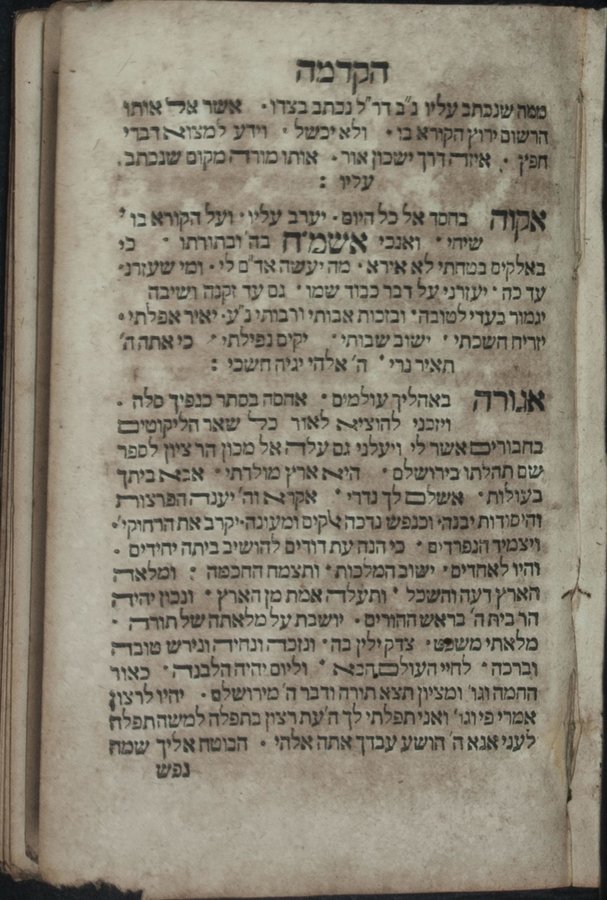 הקדמה
ממה שנכתב עליו נ"ב דר"ל נכתב בצדו · אשר אל אותו
הרשום ירוץ הקורא בו · ולא יכשל · וידע למצוא דברי
חפץ · איזה דרך ישכון אור · אותו מורה מקום שנכתב
עליו :
אקוה בחסד אל כל היום · יערב עליו · ועל הקורא בו
שיחי · ואנכי אשמ"ח בה' ובתורתו · כי
באלקים בטחתי לא אירא · מה יעשה אד"ם לי · ומי שעזרני
עד כה · יעזרני על דבר כבוד שמו · גם עד זקנה ושיבה
יגמור בעדי לטובה · ובזכות אבותי ורבותי נ"ע · יאיר אפלתי ·
יזריח חשכתי · ישוב שבותי · יקים נפילתי · כי אתה ה'
תאיר נרי · ה' אלהי יגיה חשכי :
אגורה באהליך עולמים · אחסה בסתר כנפיך סלה ·
ויזכני להוציא לאור כל שאר הליקוטים
בחבורים אשר לי ויעלני גם עלה אל מכון הר ציון לספר
שם תהלתו בירושלם · היא ארץ מולדתי · אבא ביתך
בעולות · אשלם לך נדרי · אקרא וה' יענה הפרצות
והיסודות יבנה · וכנפש נדכה לקים ומעונה · יקרב את הרחוקי' ·
ויצמיד הנפרדים · כי הנה עת דודים להושיב ביתה יחידים ·
והיו לאחדים · ישוב המלכות · ותצמח החכמה · ומלאה
הארץ דעה והשכל · ותעלה אמת מן הארץ · ונכון יהיה
הר בית ה' בראש ההורים · יושבת על מלאתה של תורה ·
מלאתי משפט · צדק ילין בה · ונזכה ונחיה ונירש טובה
וברכה · לחיי העולם הבא · וליום יהיה הלבנה · כאור
החמה וגו' ומציון תצא תורה ודבר ה' מירושלם · יהיו לרצון
אמרי פי וגו' ואני תפלתי לך ה' עת רצון בתפלה למשה תפלה
לעני אנא ה' הושע עבדך אתה אלהי · הבוטח אליך שמח
נפש